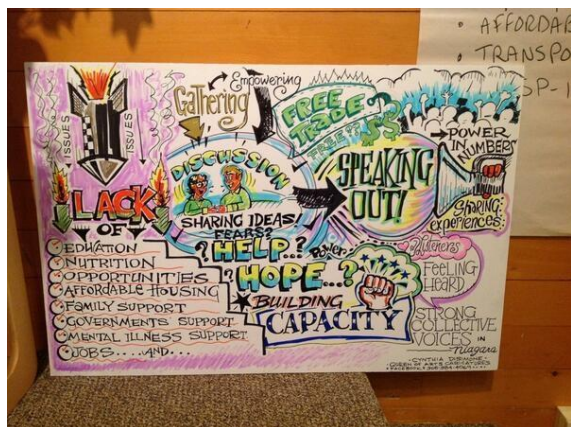 • AFFORDAB
• TRANSPO
SP-1
ISSUES
ISSUES
LACK
OF
EDUATION
NUTRITION
OPPORTUNITIES
AFFORDABLE HOUSING
FAMILY SUPPORT
GOVERNMENTS SUPPORT
MENTAL ILLNESS SUPPORT
JOBS.....AND....
Gathering
Empowering
DISCUSSION
SHARING IDEAS!
FEARS?
?HELP..?
?HOPE...?
BUILDING
CAPACITY
Power
FREE
TRADE
$$
SPEAKING
OUT!
POWER
IN
NUMBERS
SHARING
experiences:
FEELING
HEARD
STRONG
COLLECTIVE
VOICES
IN
Niagara
- CYNTHIA
QUEEN OF ARTS CARICATURES
FACEBOOK